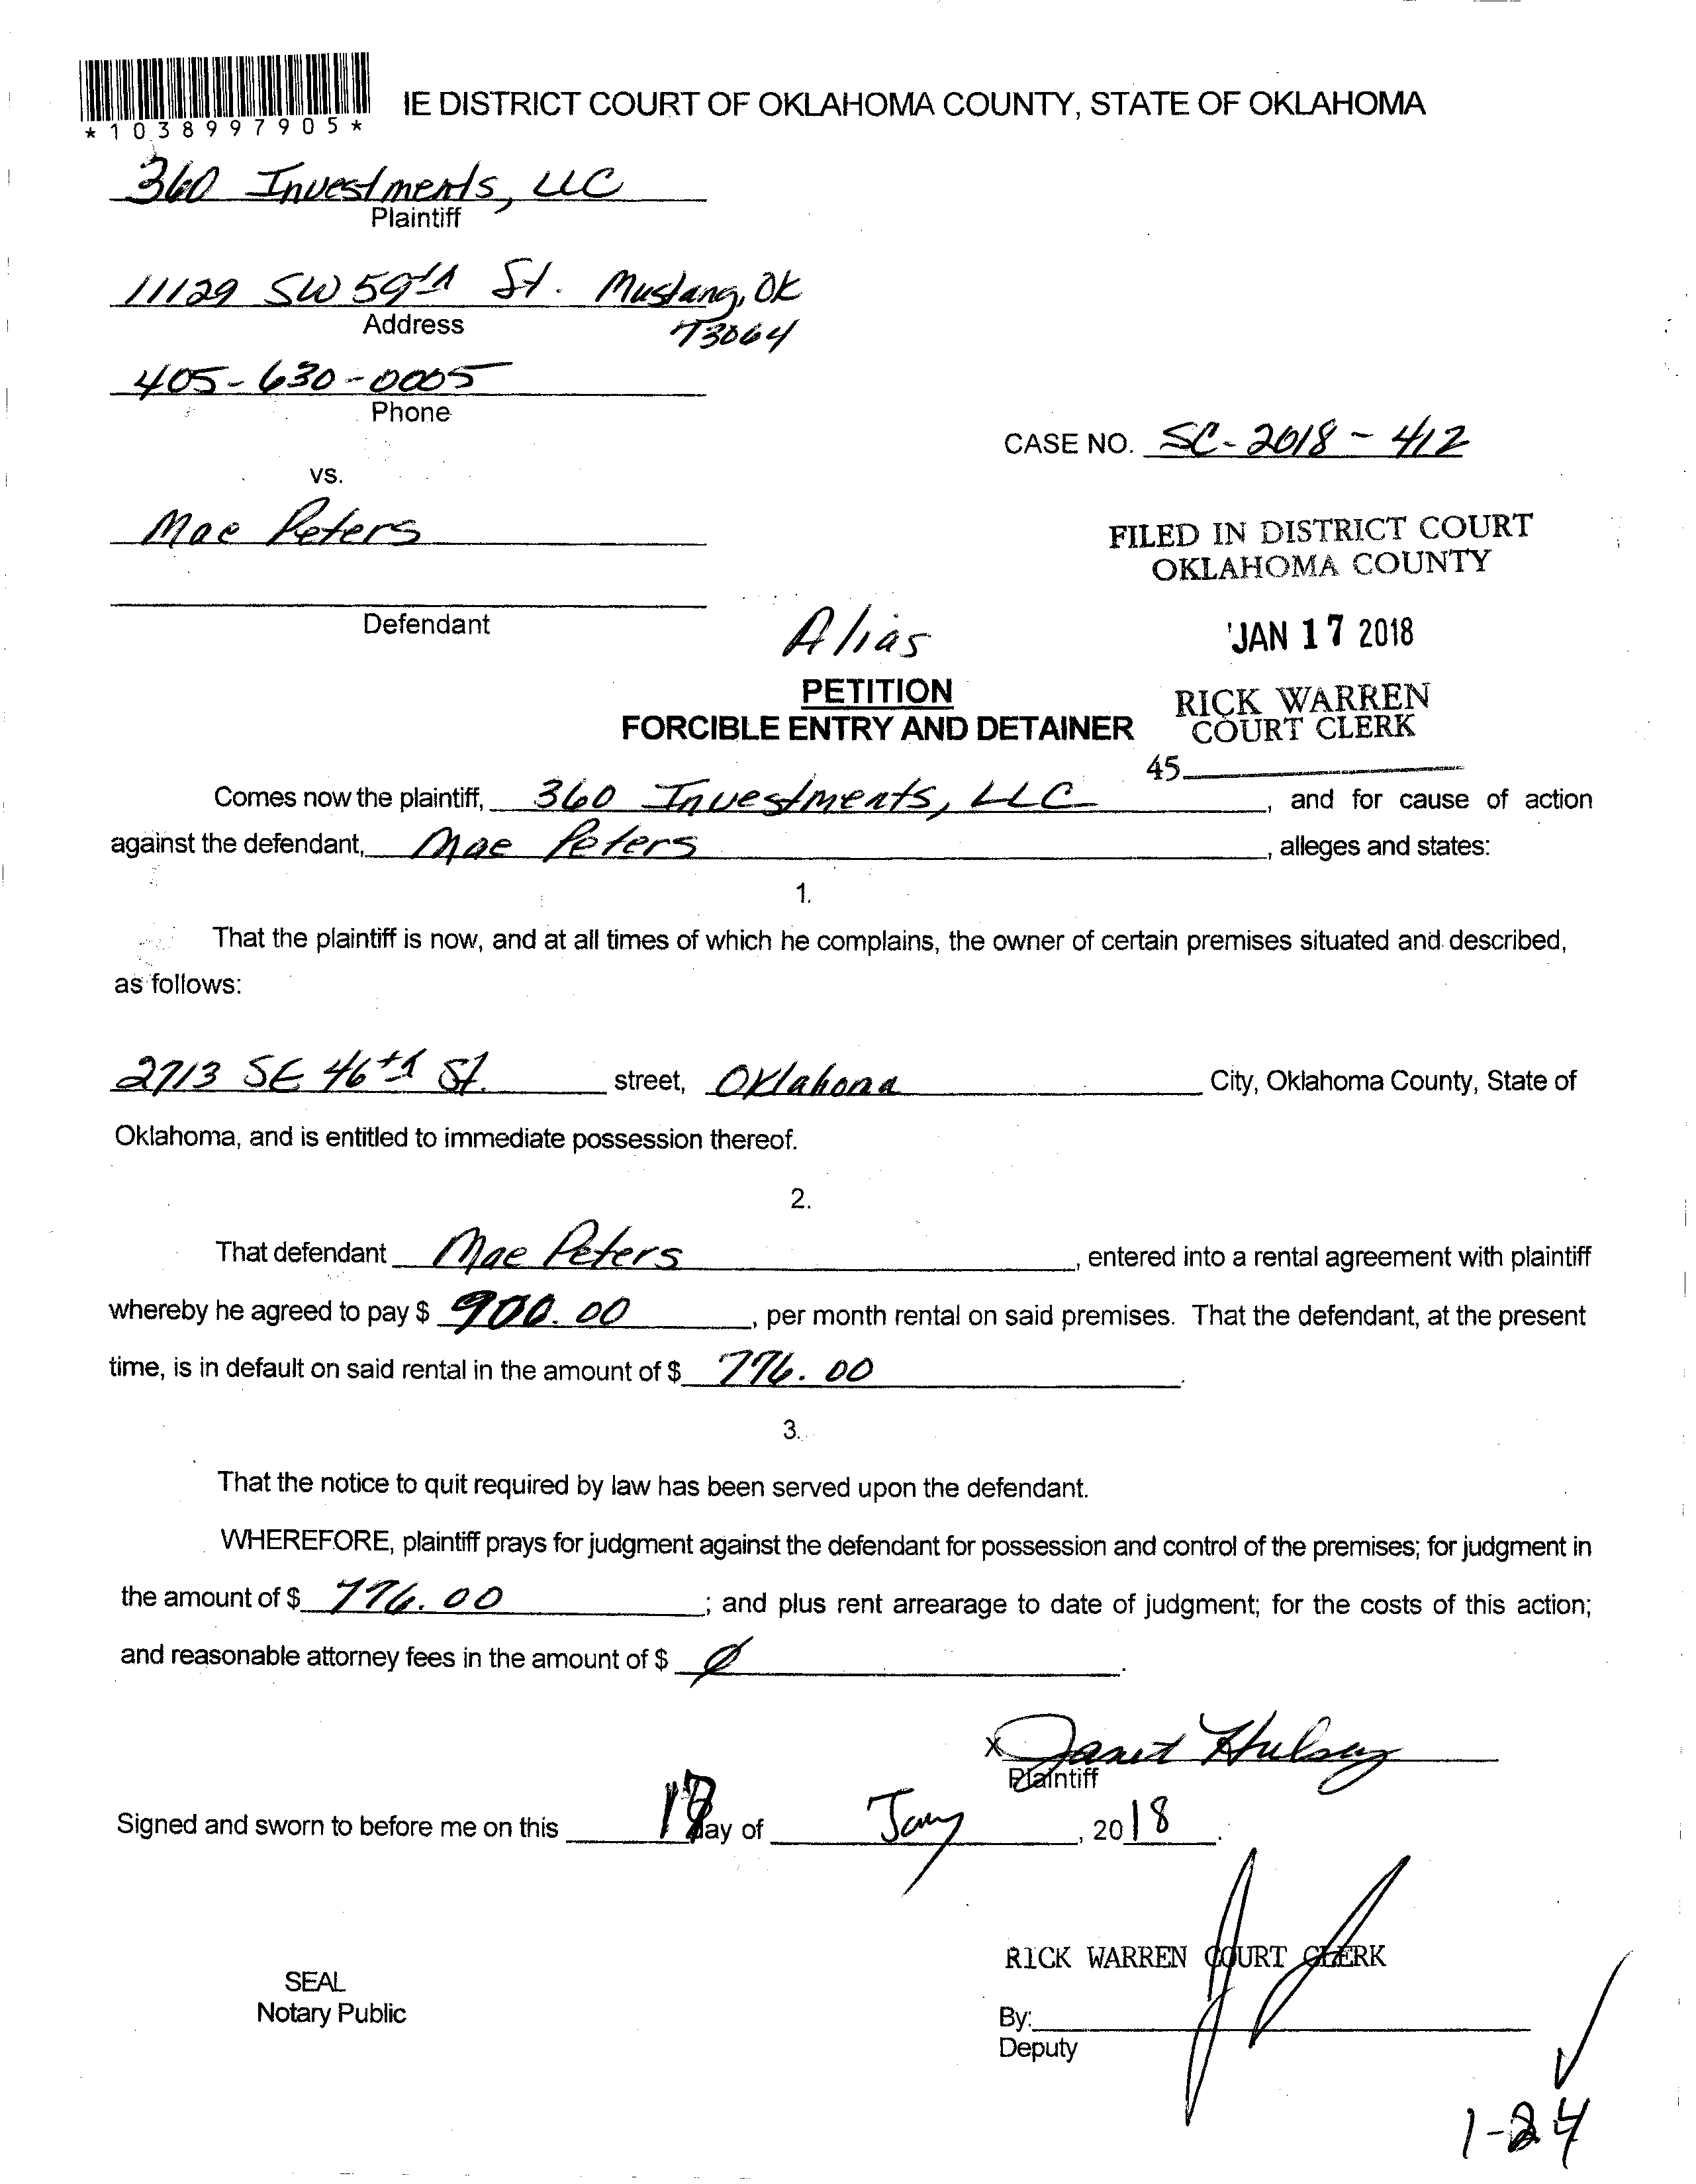 *1038997905*
IE DISTRICT COURT OF OKLAHOMA COUNTY, STATE OF OKLAHOMA
360 Investments, LLC
Plaintiff
11129 SW 59th St. Mustang, OK
Address
73064
405-630-0005
Phone
CASE NO. SC-2018-412
vs.
Mae Peters
FILED IN DISTRICT COURT
OKLAHOMA COUNTY
Defendant
Alias
JAN 17 2018
PETITION
RICK WARREN
FORCIBLE ENTRY AND DETAINER
COURT CLERK
45
Comes now the plaintiff, 360 Investments, LLC, and for cause of action
against the defendant, Mae Peters, alleges and states:
1.
That the plaintiff is now, and at all times of which he complains, the owner of certain premises situated and described,
as follows:
2713 SE 46th St. street, Oklahona City, Oklahoma County, State of
Oklahoma, and is entitled to immediate possession thereof.
2.
That defendant Mae Peters, entered into a rental agreement with plaintiff
whereby he agreed to pay $ 900.00, per month rental on said premises. That the defendant, at the present
time, is in default on said rental in the amount of $ 776.00.
3.
That the notice to quit required by law has been served upon the defendant.
WHEREFORE, plaintiff prays for judgment against the defendant for possession and control of the premises; for judgment in
the amount of $ 776.00; and plus rent arrearage to date of judgment; for the costs of this action;
and reasonable attorney fees in the amount of $ Ø.
x Janet Hulsey
Plaintiff
Signed and sworn to before me on this 17 day of Jany, 2018.
RICK WARREN COURT CLERK
SEAL
Notary Public
By:
Deputy
1-24